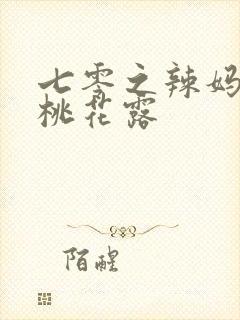 七零之辣妈
桃花露
陌醒